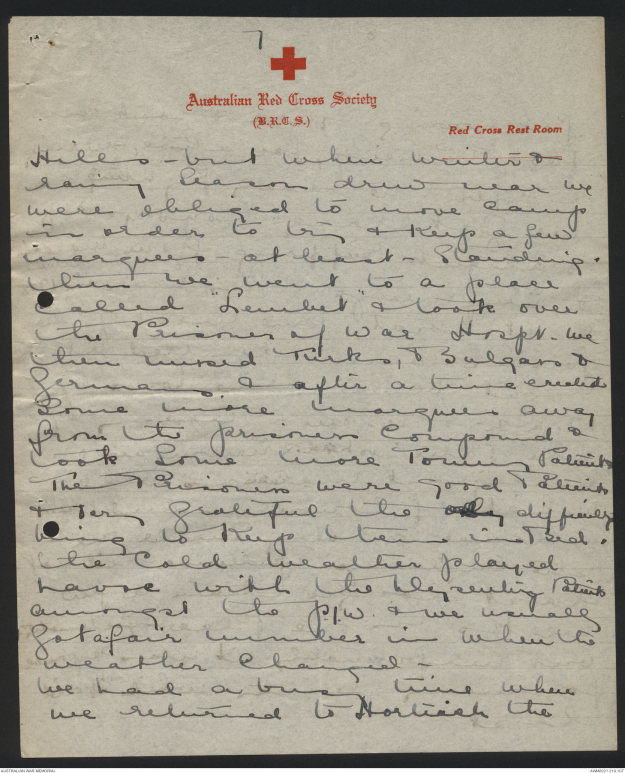 7
Australian Red Cross Society
(B.R.C.S.)
Red Cross Rest Room
Hills - but when winter &
rainy Season drew near we
were obliged to move Camp
in order to try & Keep a few
marquees - at least - Standing.
then we went to a place
Called "Lembet" & took over
the Prisoner of War Hospt. We
then nursed Turks, & Bulgars &
Germans & after a time erected
Some more marquees away
from the prisoners Compound &
took Some more Tommy Patients
The Prisoners were good Patients
& very grateful the only difficulty
being to Keep them in Bed.
the Cold weather played
havoc with the Dysentery Patients
amongst the P/W. & we usually
got a fair number in when the
weather Changed -
We had a busy time when
we returned to Hortiach the
AUSTRALIAN WAR MEMORIAL